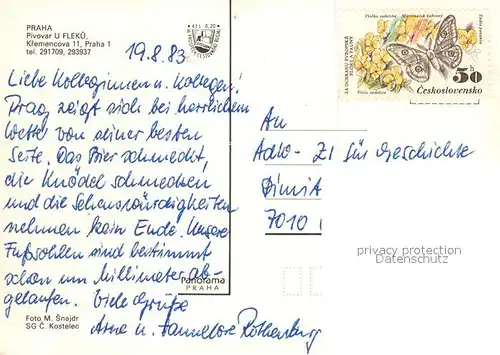 PRAHA
Pivovar U FLEKŮ,
Křemencova 11, Praha 1
tel. 291709, 293937
Kčs 0,20
19.8.83
Liebe Kolleginnen u. Kollegen!
Prag zeigt sich bei herrlichem
Wetter von seiner besten
Seite. Das Bier schmeckt,
die Knödel schmecken
und die Sehenswürdigkeiten
nehmen kein Ende. Unsere
Fußsohlen sind bestimmt
schon um Millimeter ab-
gelaufen. Viele Grüße
Arne u. Hannelore Rothenburg
Panorama
PRAHA
Foto M. Šnajdr
SG Č. Kostelec
ZA OCHRANU EVROPSKÉ
FLÓRY A FAUNY
Viola sudetica
50 h
Československo
An
AdW - ZI für Geschichte
7010
privacy protection
Datenschutz